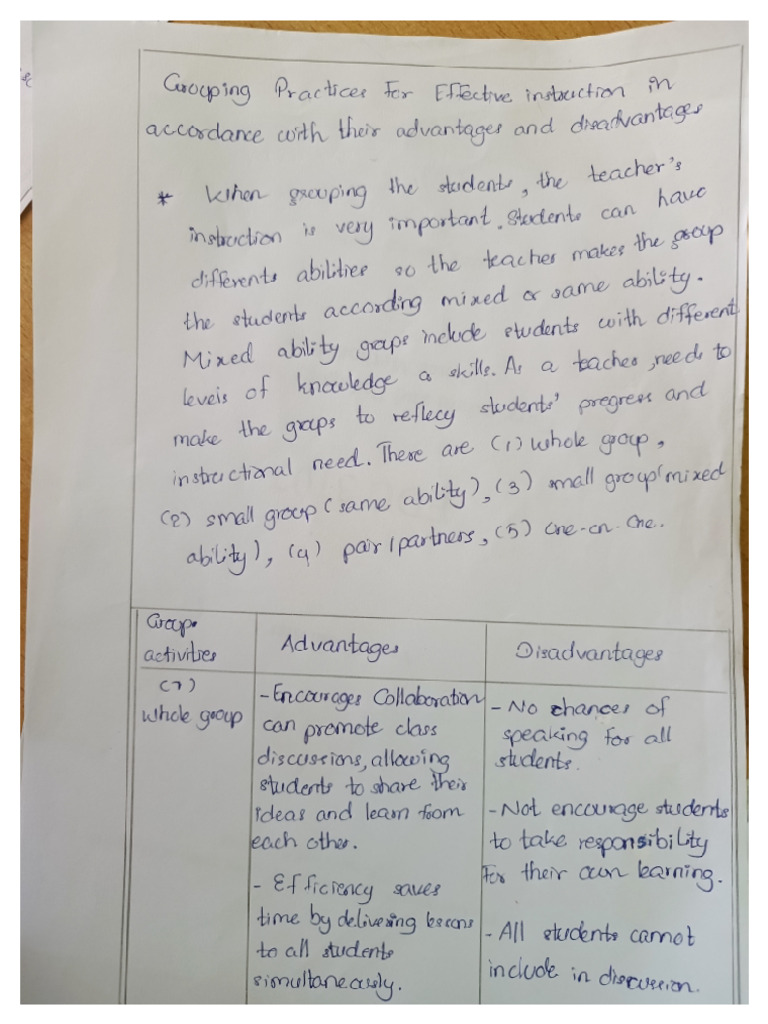 Grouping Practices For Effective instruction in
accordance with their advantages and disadvantages
* When grouping the students, the teacher's
instruction is very important. Students can have
differents abilities so the teacher makes the group
the students according mixed or same ability.
Mixed ability groups include students with different
levels of knowledge a skills. As a teacher, needs to
make the groups to reflecy students' pregress and
instructional need. There are (1) whole group,
(2) small group (same ability), (3) small group (mixed
ability), (4) pair / partners, (5) One-on-One.
Group
activities
Advantages
Disadvantages
(1)
Whole group
- Encourages Collaboration
can promote class
discussions, allowing
students to share their
ideas and learn from
each other.
- Efficiency saves
time by delivering lessons
to all students
simultaneously.
- No chances of
speaking for all
students.
- Not encourage students
to take responsibility
For their own learning.
- All students cannot
include in discussion.